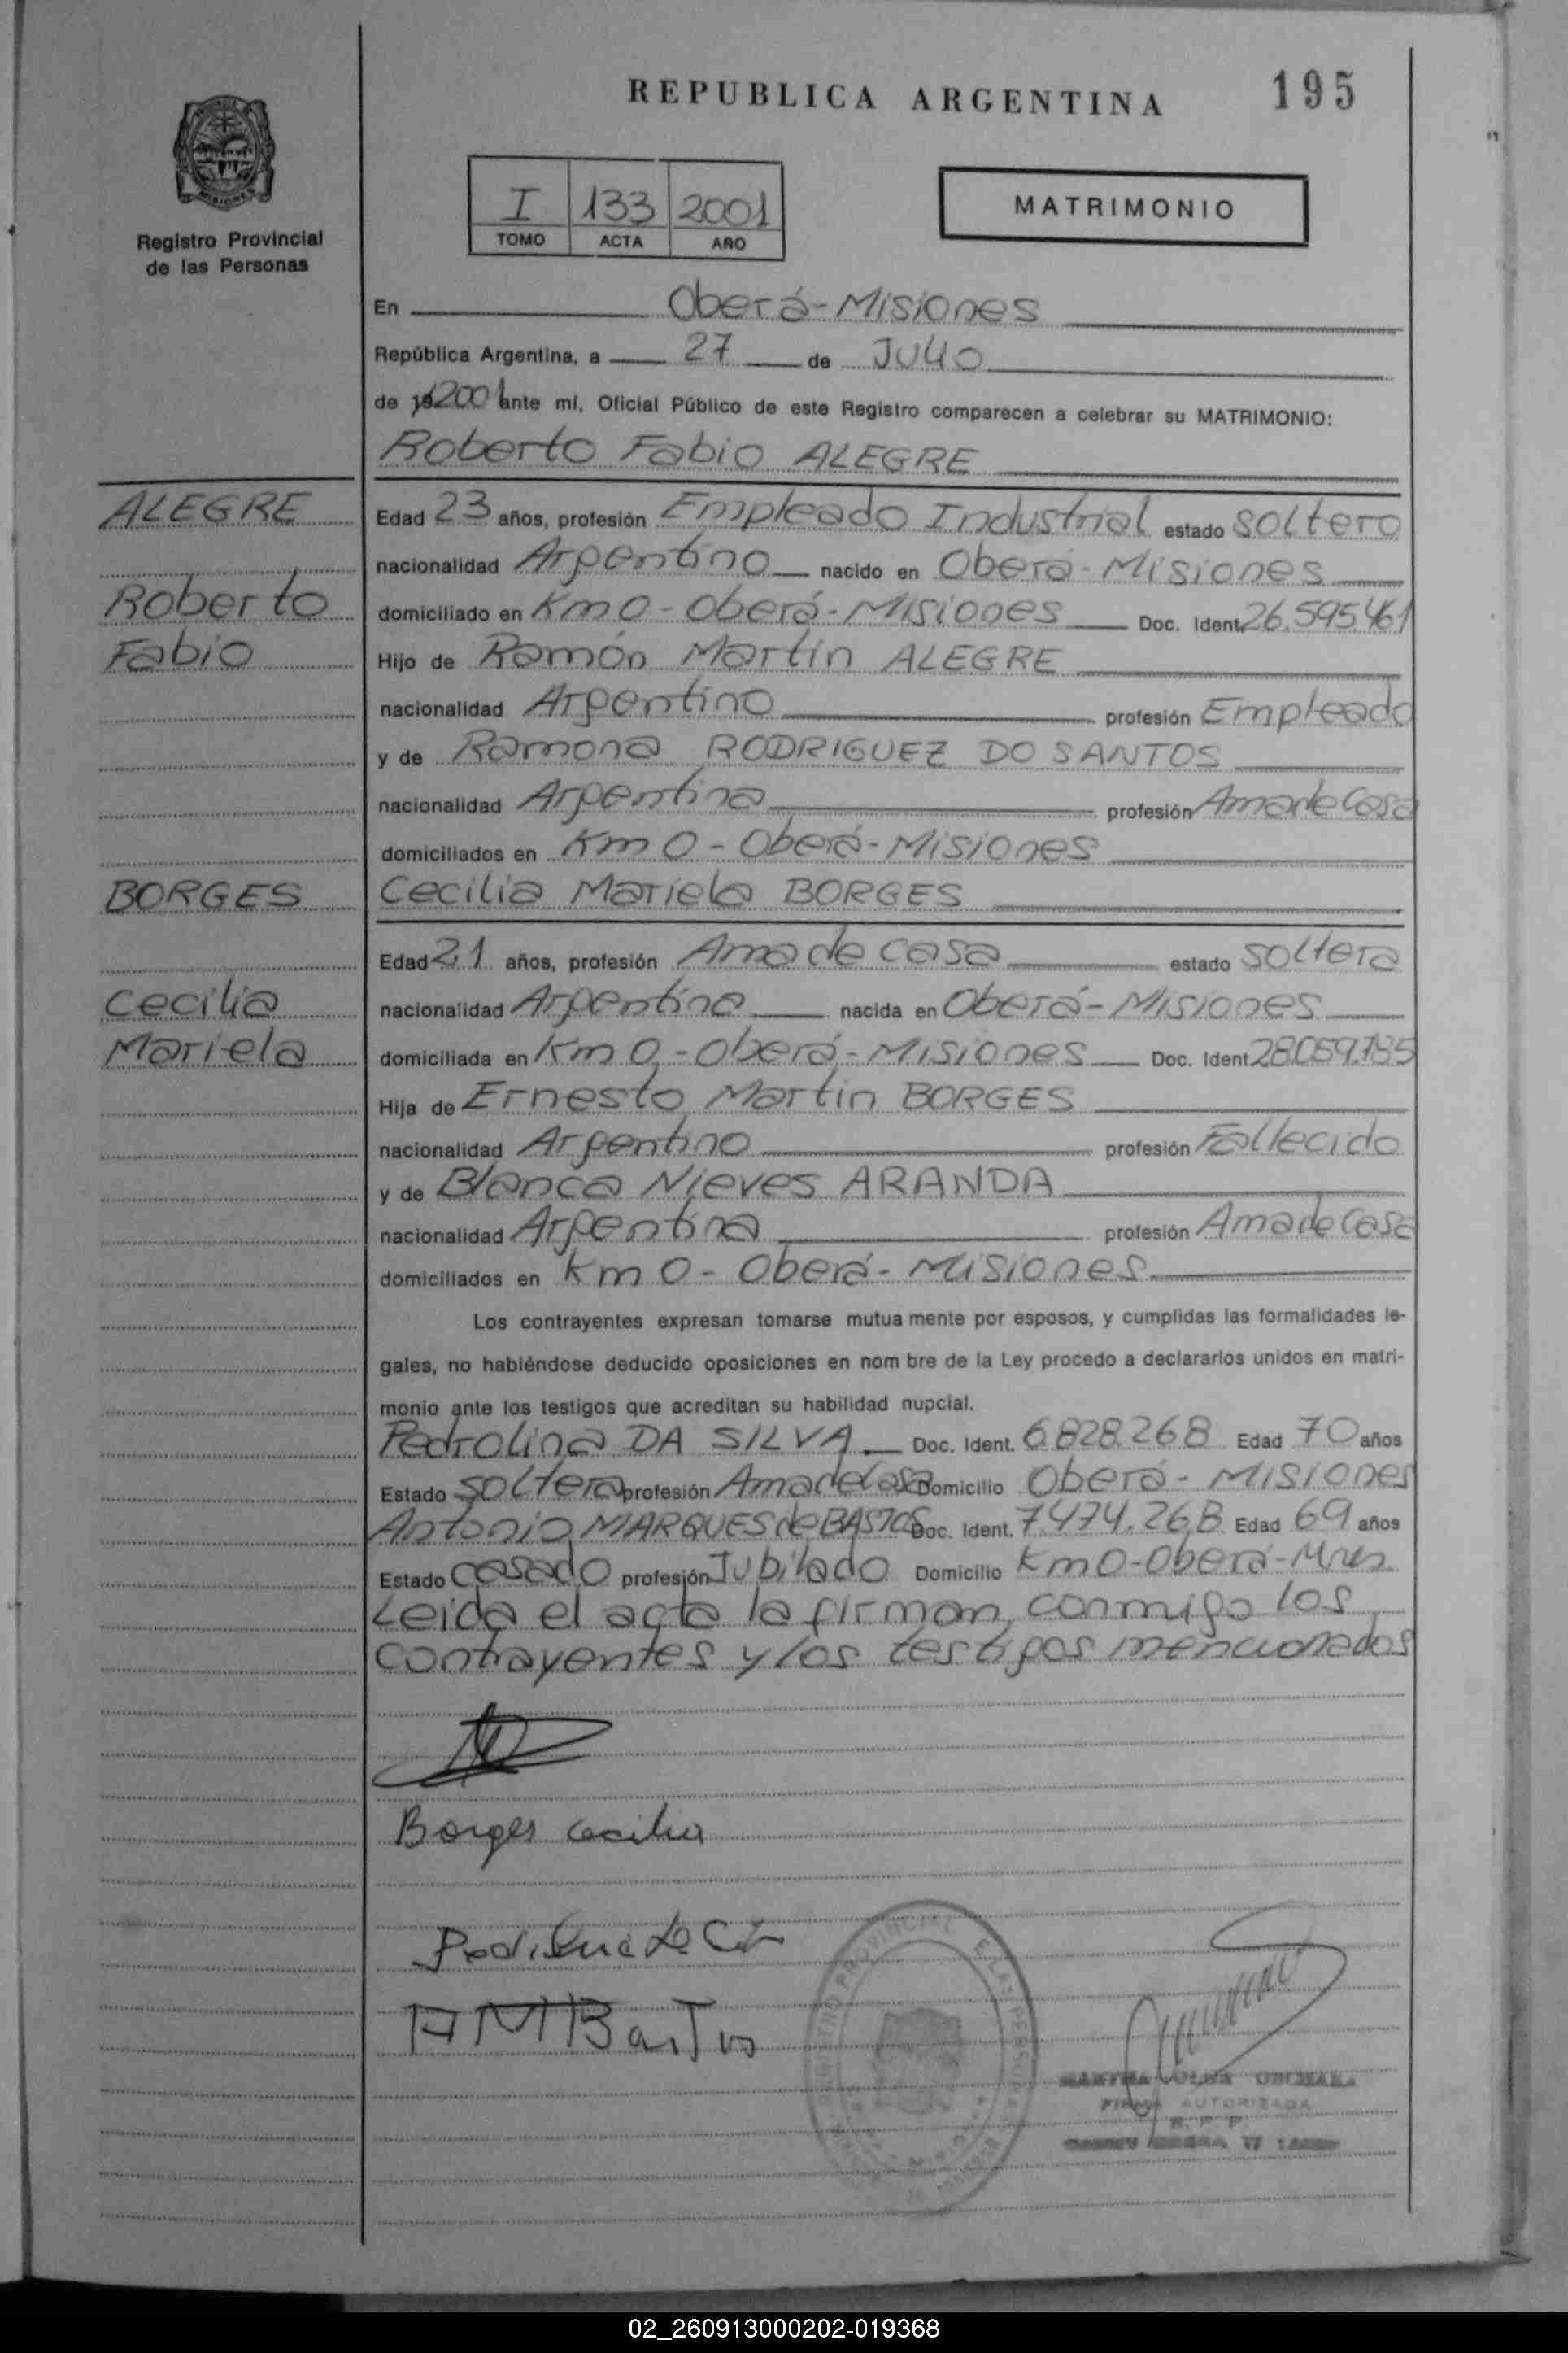 REPUBLICA ARGENTINA 195
I 133 2001
TOMO ACTA AÑO
MATRIMONIO
Registro Provincial
de las Personas
En Oberá-Misiones
República Argentina, a 27 de Julio
de 2001 ante mí, Oficial Público de este Registro comparecen a celebrar su MATRIMONIO:
Roberto Fabio ALEGRE
ALEGRE
Roberto
Fabio
Edad 23 años, profesión Empleado Industrial estado soltero
nacionalidad Argentino nacido en Oberá-Misiones
domiciliado en Km 0-Oberá-Misiones Doc. Ident. 26.595.461
Hijo de Ramón Martín ALEGRE
nacionalidad Argentino profesión Empleado
y de Ramona RODRIGUEZ DO SANTOS
nacionalidad Argentina profesión Ama de Casa
domiciliados en Km 0-Oberá-Misiones
BORGES
Cecilia
Mariela
Cecilia Mariela BORGES
Edad 21 años, profesión Ama de casa estado soltera
nacionalidad Argentina nacida en Oberá-Misiones
domiciliada en Km 0-Oberá-Misiones Doc. Ident. 28.059.785
Hija de Ernesto Martin BORGES
nacionalidad Argentino profesión Fallecido
y de Blanca Nieves ARANDA
nacionalidad Argentina profesión Ama de Casa
domiciliados en Km 0-Oberá-Misiones
Los contrayentes expresan tomarse mutua mente por esposos, y cumplidas las formalidades le-
gales, no habiéndose deducido oposiciones en nom bre de la Ley procedo a declararlos unidos en matri-
monio ante los testigos que acreditan su habilidad nupcial.
Pedrolina DA SILVA Doc. Ident. 6.828.268 Edad 70 años
Estado soltera profesión Ama de Casa Domicilio Oberá-Misiones
Antonio MARQUES de BASTOS Doc. Ident. 7.474.268 Edad 69 años
Estado casado profesión Jubilado Domicilio Km 0-Oberá-Mnes
Leida el acta la firman conmigo los
contrayentes y los testigos mencionados
Borges Cecilia
AMBastos
FIRMA AUTORIZADA
R. P. P.
02_260913000202-019368